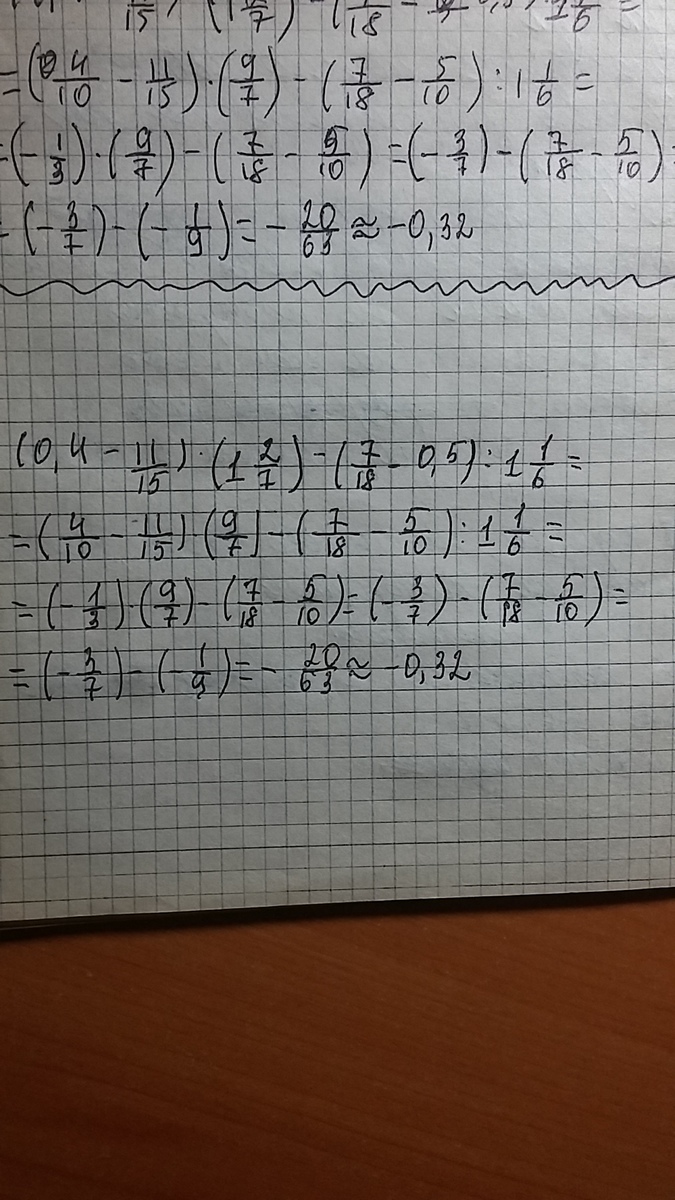 =(0 4/10 - 11/15)·(9/7) - (7/18 - 5/10) : 1 1/6 =
=(-1/3)·(9/7) - (7/18 - 5/10) = (-3/7) - (7/18 - 5/10) =
= (-3/7) - (-1/9) = -20/63 ≈ -0,32
(0,4 - 11/15)·(1 2/7) - (7/18 - 0,5) : 1 1/6 =
= (4/10 - 11/15)·(9/7) - (7/18 - 5/10) : 1 1/6 =
= (-1/3)·(9/7) - (7/18 - 5/10) = (-3/7) - (7/18 - 5/10) =
= (-3/7) - (-1/9) = - 20/63 ≈ -0,32